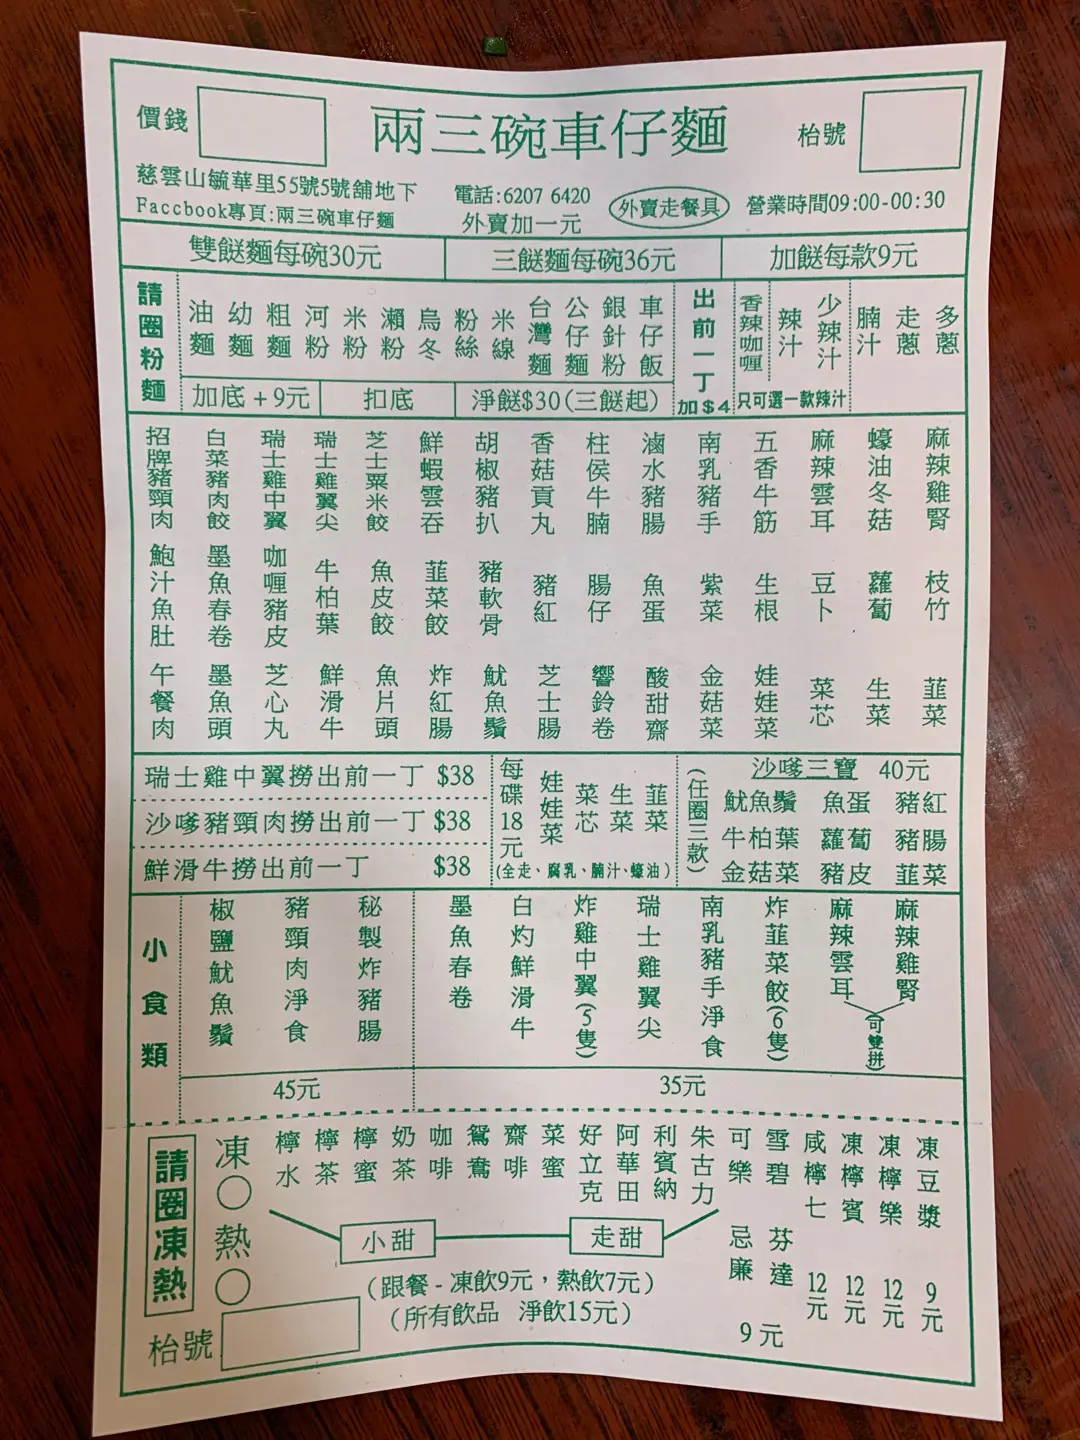 價錢
兩三碗車仔麵
枱號
慈雲山毓華里55號5號舖地下
電話:6207 6420
外賣走餐具
營業時間09:00-00:30
Faccbook專頁:兩三碗車仔麵
外賣加一元
雙餸麵每碗30元
三餸麵每碗36元
加餸每款9元
請圈粉麵
油麵
幼麵
粗麵
河粉
米粉
瀨粉
烏冬
粉絲
米線
台灣麵
公仔麵
銀針粉
車仔飯
出前一丁
加$4
香辣咖喱
辣汁
少辣汁
只可選一款辣汁
腩汁
走蔥
多蔥
加底+9元
扣底
淨餸$30(三餸起)
招牌豬頸肉
白菜豬肉餃
瑞士雞中翼
瑞士雞翼尖
芝士粟米餃
鮮蝦雲吞
胡椒豬扒
香菇貢丸
柱侯牛腩
滷水豬腸
南乳豬手
五香牛筋
麻辣雲耳
蠔油冬菇
麻辣雞腎
鮑汁魚肚
墨魚春卷
咖喱豬皮
牛柏葉
魚皮餃
韮菜餃
豬軟骨
豬紅
腸仔
魚蛋
紫菜
生根
豆卜
蘿蔔
枝竹
午餐肉
墨魚頭
芝心丸
鮮滑牛
魚片頭
炸紅腸
魷魚鬚
芝士腸
響鈴卷
酸甜齋
金菇菜
娃娃菜
菜芯
生菜
韮菜
瑞士雞中翼撈出前一丁 $38
沙嗲豬頸肉撈出前一丁 $38
鮮滑牛撈出前一丁 $38
每碟18元
娃娃菜
菜芯
生菜
韮菜
(全走、腐乳、腩汁、蠔油)
(任圈三款)
沙嗲三寶 40元
魷魚鬚 魚蛋 豬紅
牛柏葉 蘿蔔 豬腸
金菇菜 豬皮 韮菜
小食類
椒鹽魷魚鬚
豬頸肉淨食
秘製炸豬腸
45元
墨魚春卷
白灼鮮滑牛
炸雞中翼(5隻)
瑞士雞翼尖
南乳豬手淨食
炸韮菜餃(6隻)
麻辣雲耳
麻辣雞腎
(可雙拼)
35元
請圈凍熱
凍
熱
檸水
檸茶
檸蜜
奶茶
咖啡
鴛鴦
齋啡
菜蜜
好立克
阿華田
利賓納
朱古力
可樂
雪碧
忌廉
芬達
9元
咸檸七
12元
凍檸賓
12元
凍檸樂
12元
凍豆漿
9元
小甜
走甜
(跟餐 - 凍飲9元，熱飲7元)
(所有飲品 淨飲15元)
枱號